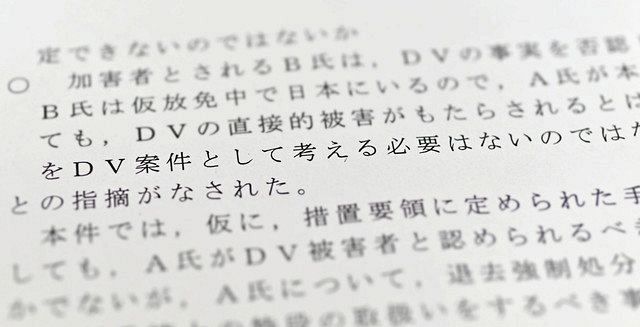 定できないのではないか
○ 加害者とされるB氏は，DVの事実を否認
B氏は仮放免中で日本にいるので，A氏が本
ても，DVの直接的被害がもたらされるとは
をDV案件として考える必要はないのではな
との指摘がなされた。
本件では，仮に，措置要領に定められた手
しても，A氏がDV被害者と認められるべき
かでないが，A氏について，退去強制処分
の取扱いをするべき事